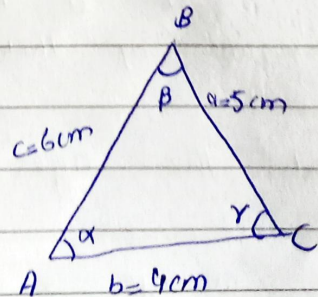 B
β
a=5cm
c=6cm
α
γ
C
A
b=4cm